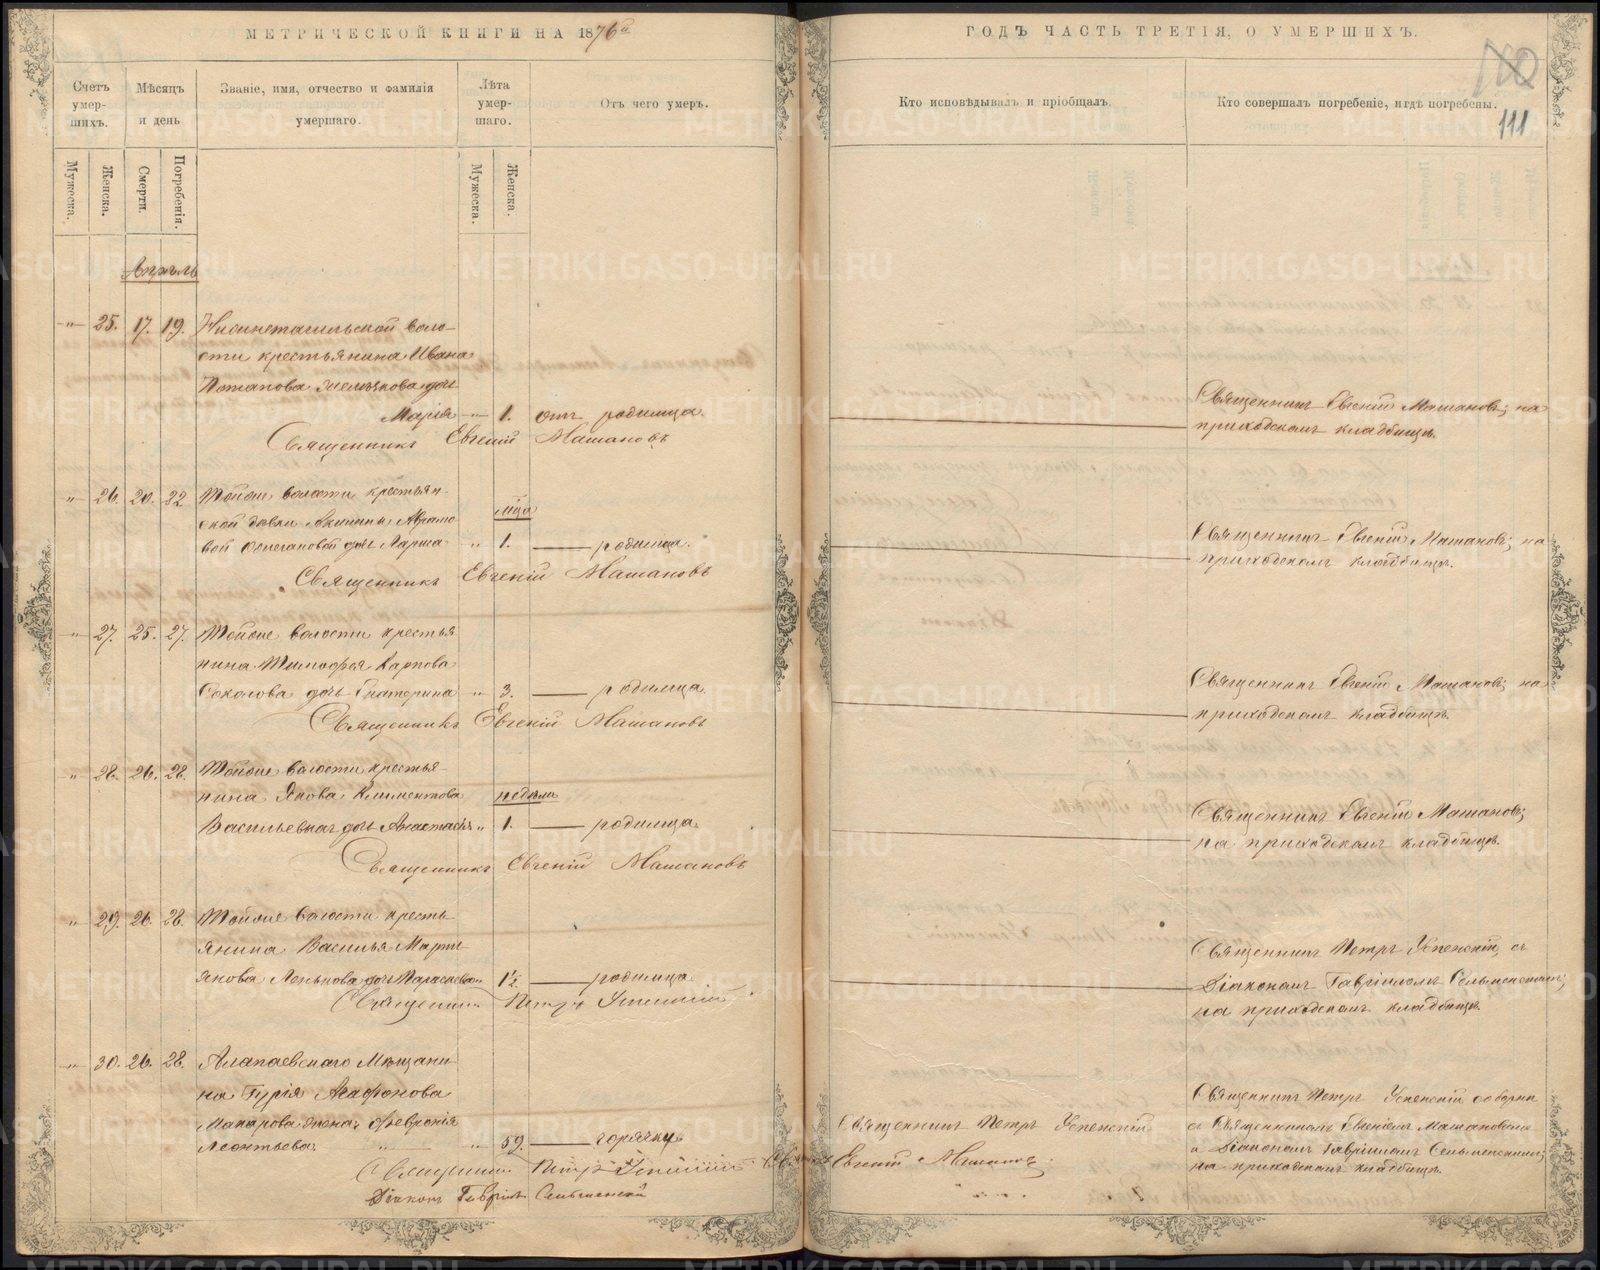 МЕТРИЧЕСКОЙ КНИГИ НА 1876й
ГОДЪ ЧАСТЬ ТРЕТІЯ, О УМЕРШИХЪ.
111
Счетъ умер-шихъ.
Мѣсяцъ и день
Званіе, имя, отчество и фамилія умершаго.
Лѣта умер-шаго.
Отъ чего умеръ.
Кто исповѣдывалъ и пріобщалъ.
Кто совершалъ погребеніе, и гдѣ погребены.
Мужеска.
Женска.
Смерти.
Погребенія.
Мужеска.
Женска.
Апрѣль
" 25. 17. 19. Нижнетагильской воло-
сти крестьянина Ивана
Потапова дочь
Марія " 1. отъ родимца.
Священникъ Евгеній Машановъ
Священникъ Евгеній Машановъ; на
приходскомъ кладбищѣ.
" 26. 20. 22. Тойже волости крестьян-
ской дѣвки Авраамо-
вой дочь мѣсца
" 1. — родимца.
Священникъ Евгеній Машановъ
Священникъ Евгеній Машановъ; на
приходскомъ кладбищѣ.
" 27. 25. 27. Тойже волости крестья
нина Тимофея Карпова
Соколова дочь Екатерина " 3. — родимца.
Священникъ Евгеній Машановъ
Священникъ Евгеній Машановъ; на
приходскомъ кладбищѣ.
" 28. 26. 28. Тойже волости крестья-
нина Якова Климентова недѣль
дочь Анастасія " 1. — родимца.
Священникъ Евгеній Машановъ
Священникъ Евгеній Машановъ;
на приходскомъ кладбищѣ.
" 29. 26. 28. Тойже волости кресть-
янина Василья Марти-
янова дочь Параскева " 1½ — родимца.
Священникъ Петръ Успенскій
Священникъ Петръ Успенскій, съ
Діакономъ Гавріиломъ
на приходскомъ кладбищѣ.
" 30. 26. 28. Алапаевскаго Мѣщани-
на Гурія Агафонова
Макарова жена Февронія
Леонтьева. " 59. — горячки
Священникъ Петръ Успенскій
Діаконъ Гавріилъ
Священникъ Петръ Успенскій
Евгеній Машановъ
Священникъ Петръ Успенскій соборнѣ
съ Священникомъ Евгеніемъ Машановымъ
и Діакономъ Гавріиломъ
на приходскомъ кладбищѣ.
METRIKI.GASO-URAL.RU